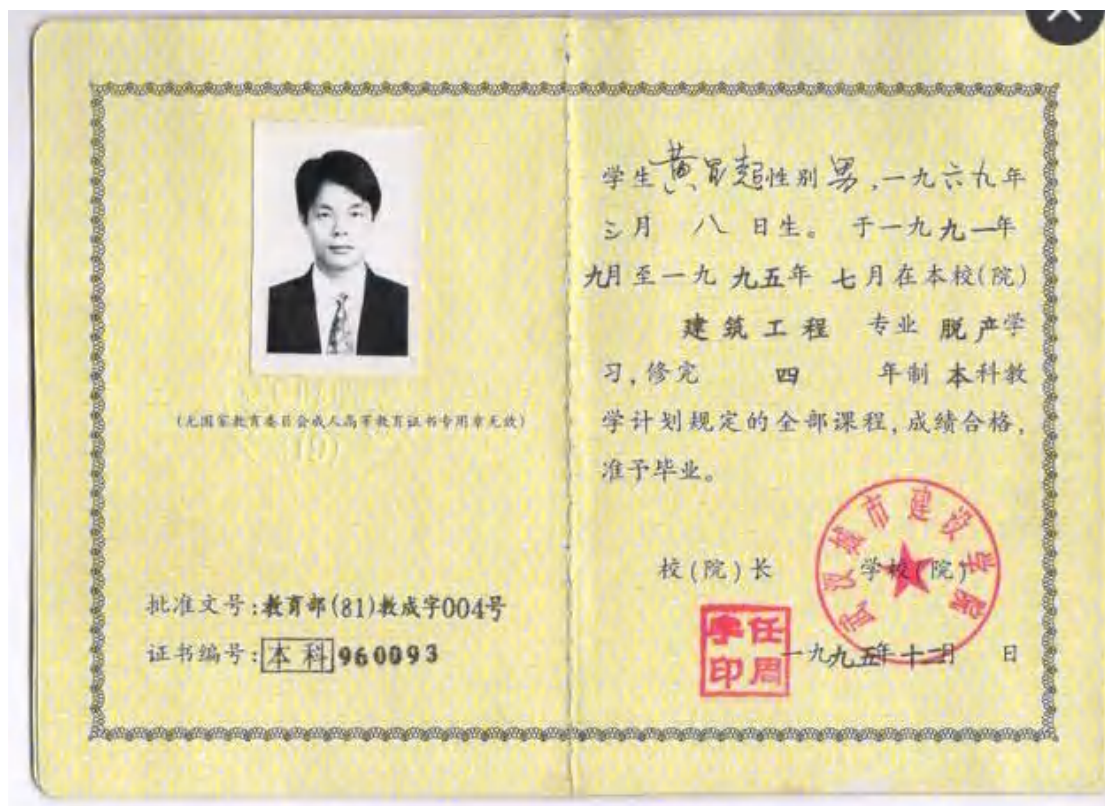 (无国家教育委员会成人高等教育证书专用章无效)
批准文号:教育部(81)教成字004号
证书编号:本科960093
学生黄昆超性别男,一九六九年
三月 八 日生。 于一九九一年
九月至一九九五年 七月在本校(院)
建筑工程 专业 脱产学
习,修完 四 年制 本科教
学计划规定的全部课程,成绩合格,
准予毕业。
校(院)长 学校(院)
武汉城市建设学院
任周
印
一九九五年十二月 日